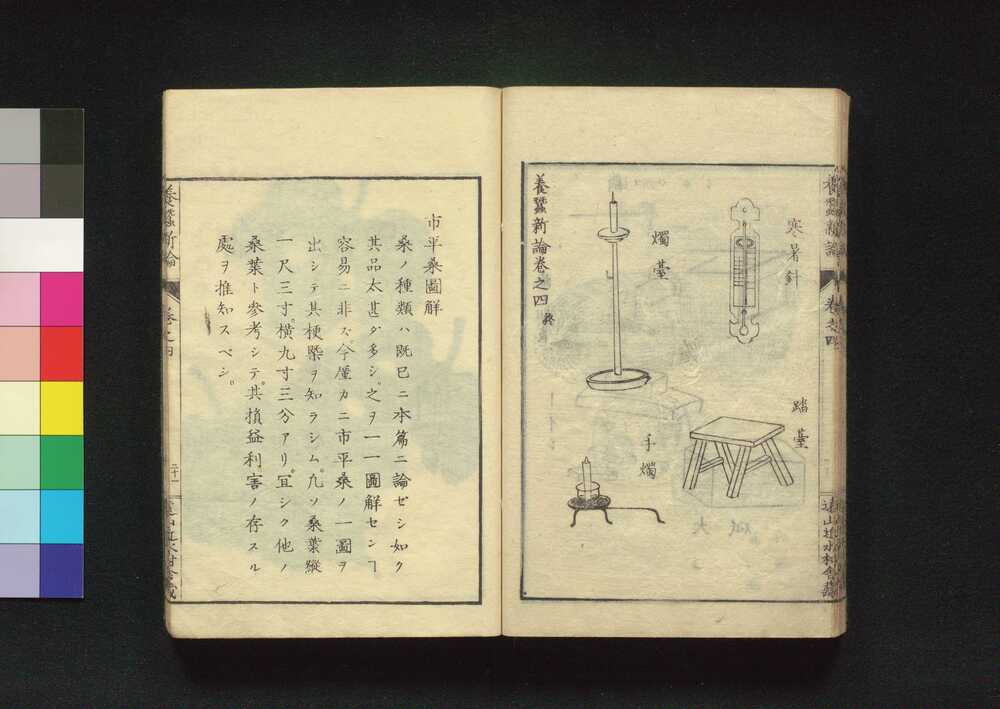 養蠶新論
卷之四
遠山近水村舍藏
寒暑針
踏臺
燭臺
手燭
養蠶新論卷之四終
市平桑圖解
桑ノ種類ハ既巳ニ本篇ニ論ゼシ如ク
其品太甚ダ多シ。之ヲ一一圖解センヿ
容易ニ非ズ。今僅カニ市平桑ノ一圖ヲ
出シテ其梗槩ヲ知ラシム。凡ソ桑葉縱
一尺三寸。橫九寸三分アリ。冝シク他ノ
桑葉ト參考シテ。其損益利害ノ存スル
處ヲ推知スベシ。
養蠶新論
卷之四
二十一
遠山近水村舍藏